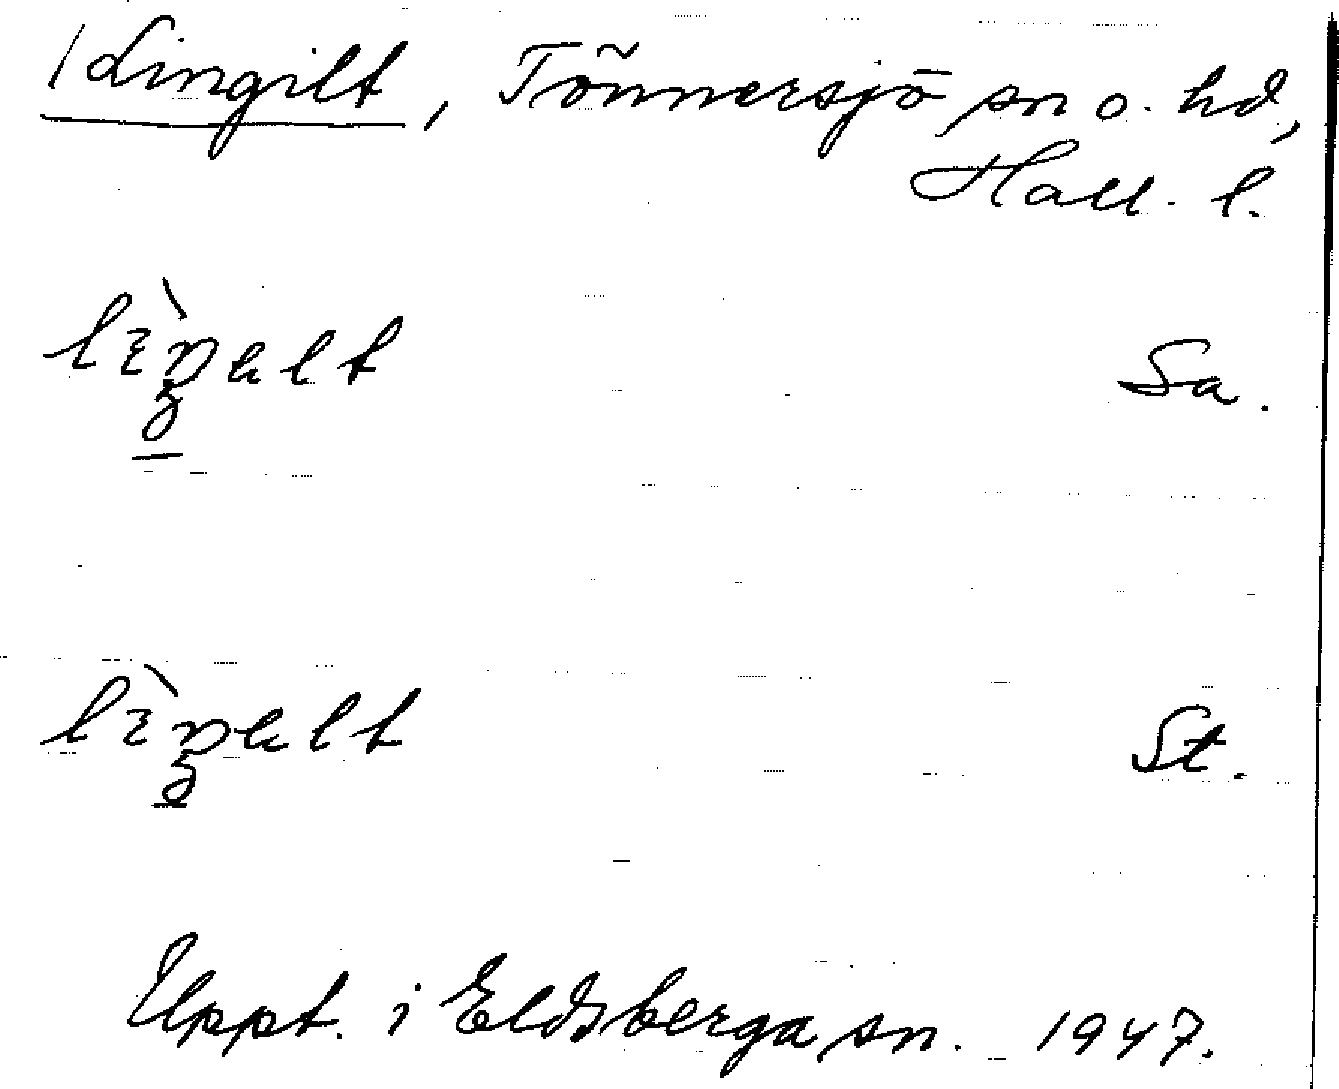 /Lingilt, Tönnersjö sn o. hd,
Hall. l.
Sa.
St.
Uppt. i Eldsberga sn. 1947.